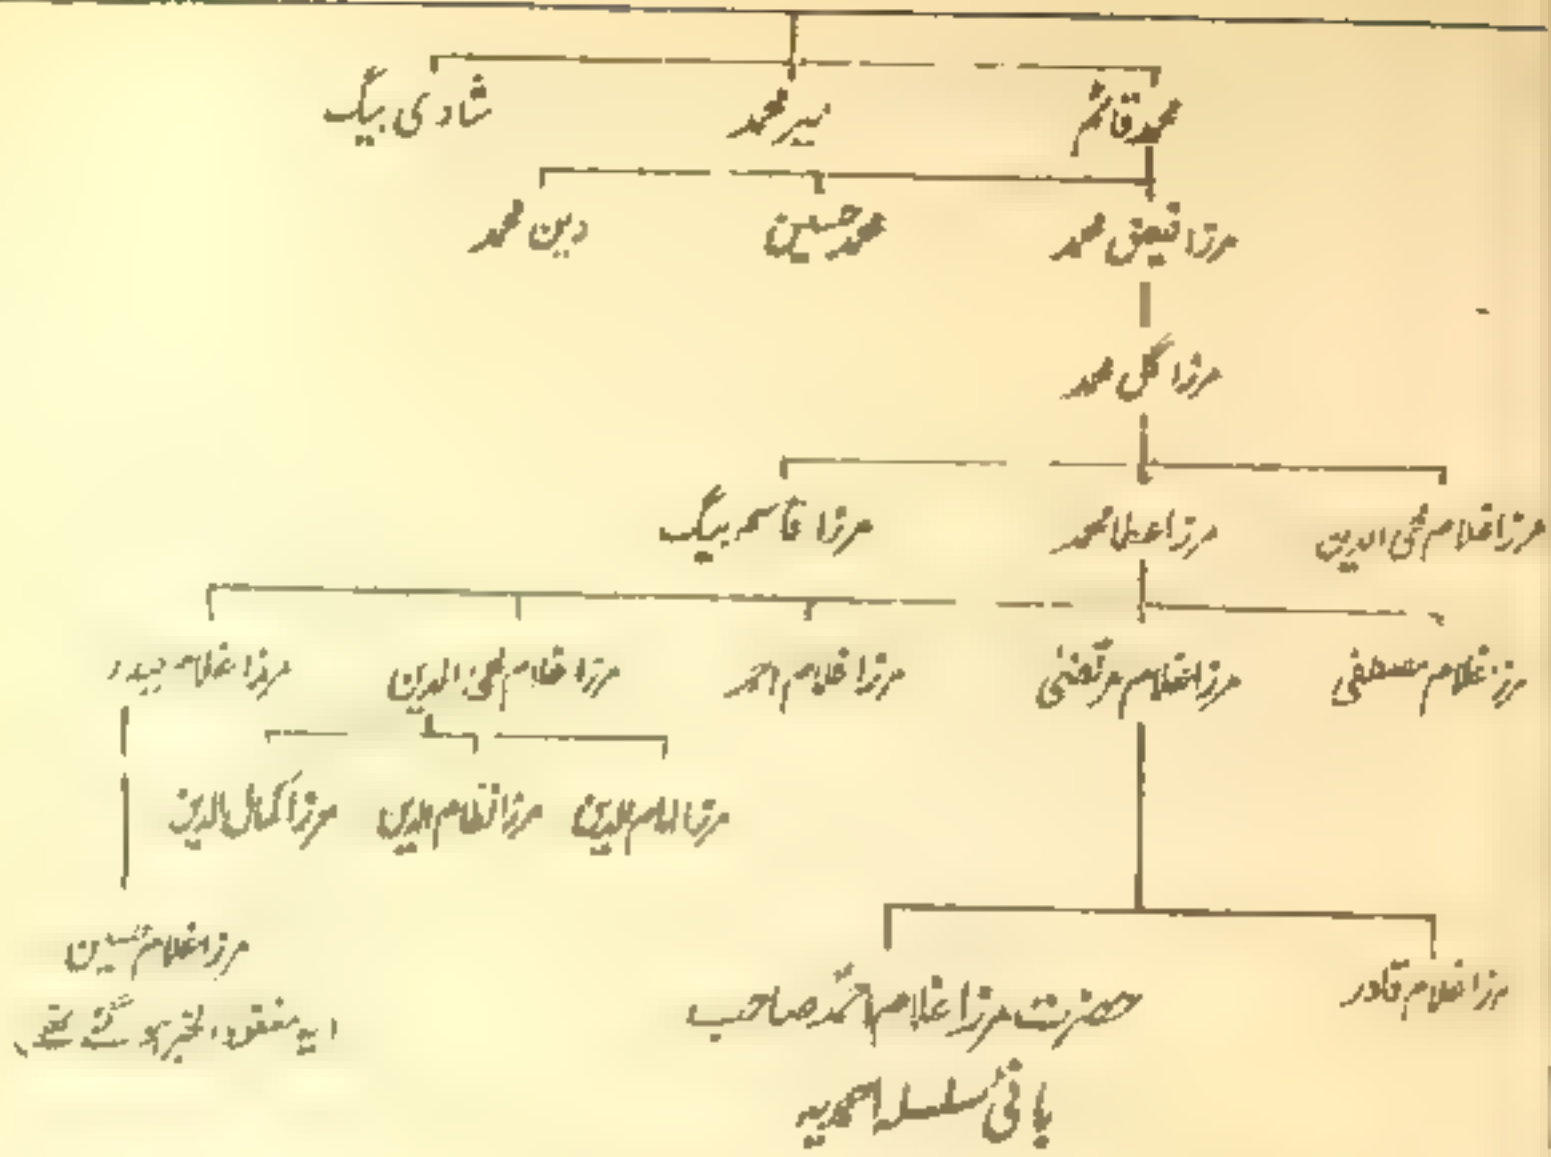 محمد قائم پیر محمد شادی بیگ
مرزا فیض محمد محمد حسین دین محمد
مرزا گل محمد
مرزا غلام محی الدین مرزا عطا محمد مرزا قاسم بیگ
مرزا غلام مصطفی مرزا غلام مرتضیٰ مرزا غلام احمد مرزا غلام محی الدین مرزا غلام حیدر
مرزا امام الدین مرزا نظام الدین مرزا کمال الدین
مرزا غلام حسین
(یہ مفقود الخبر ہو گئے تھے)
مرزا غلام قادر حضرت مرزا غلام احمد صاحب
بانی سلسلہ احمدیہ